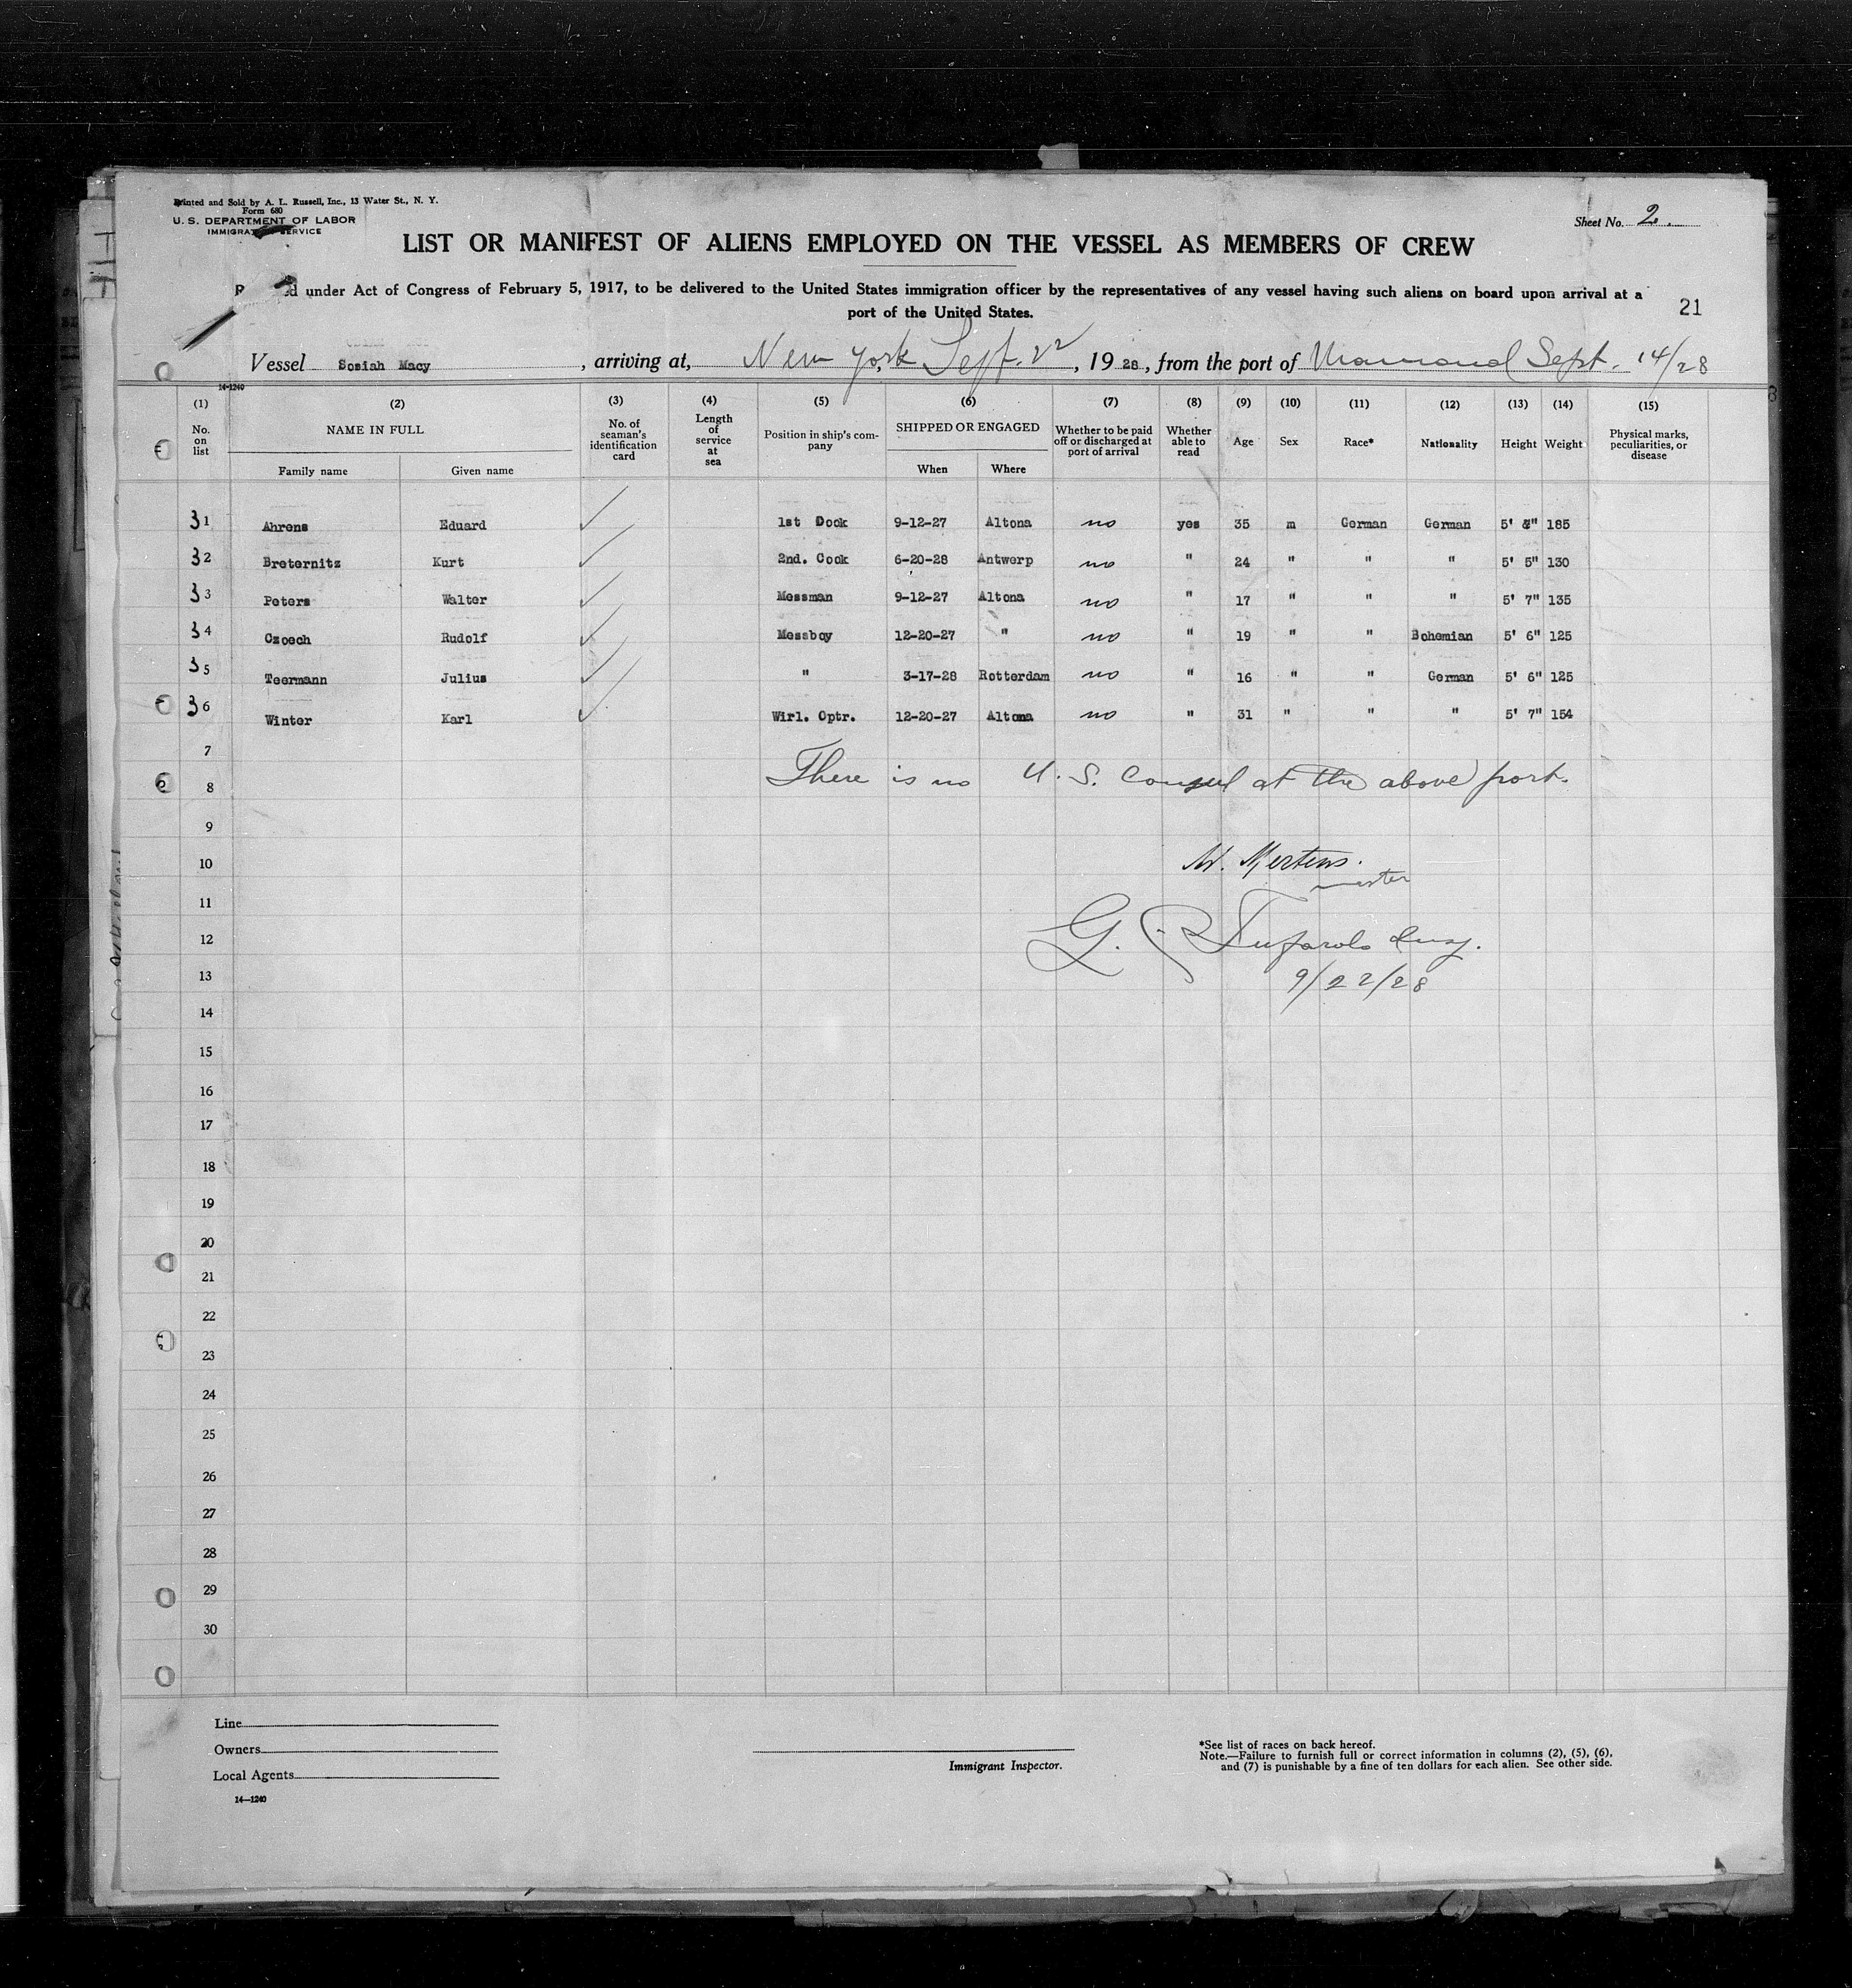 Printed and Sold by A. L. Russell, Inc., 13 Water St., N. Y.
Form 680
U. S. DEPARTMENT OF LABOR
IMMIGRATION SERVICE
Sheet No. 2.
LIST OR MANIFEST OF ALIENS EMPLOYED ON THE VESSEL AS MEMBERS OF CREW
under Act of Congress of February 5, 1917, to be delivered to the United States immigration officer by the representatives of any vessel having such aliens on board upon arrival at a
port of the United States.
21
Vessel Sosiah Macy, arriving at, New York, Sept. 22, 1928, from the port of Sept. 14/28
14-1240
(1) (2) (3) (4) (5) (6) (7) (8) (9) (10) (11) (12) (13) (14) (15)
No. on list NAME IN FULL No. of seaman's identification card Length of service at sea Position in ship's company SHIPPED OR ENGAGED Whether to be paid off or discharged at port of arrival Whether able to read Age Sex Race* Nationality Height Weight Physical marks, peculiarities, or disease
Family name Given name When Where
31 Ahrens Eduard 1st Dook 9-12-27 Altona no yes 35 m German German 5' " 185
32 Breternitz Kurt 2nd. Cook 6-20-28 Antwerp no " 24 " " " 5' 5" 130
33 Peters Walter Messman 9-12-27 Altona no " 17 " " " 5' 7" 135
34 Czoech Rudolf Messboy 12-20-27 " no " 19 " " Bohemian 5' 6" 125
35 Teermann Julius " 3-17-28 Rotterdam no " 16 " " German 5' 6" 125
36 Winter Karl Wirl. Optr. 12-20-27 Altona no " 31 " " " 5' 7" 154
7
There is no U. S. Consul at the above port.
8
9
10
M. Mertens.
master
11
12
G. Insp.
13
9/22/28
14
15
16
17
18
19
20
21
22
23
24
25
26
27
28
29
30
Line
Owners
Local Agents
14—1240
Immigrant Inspector.
*See list of races on back hereof.
Note.—Failure to furnish full or correct information in columns (2), (5), (6),
and (7) is punishable by a fine of ten dollars for each alien. See other side.